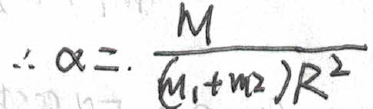 ∴ α = M / (m₁ + m₂)R²